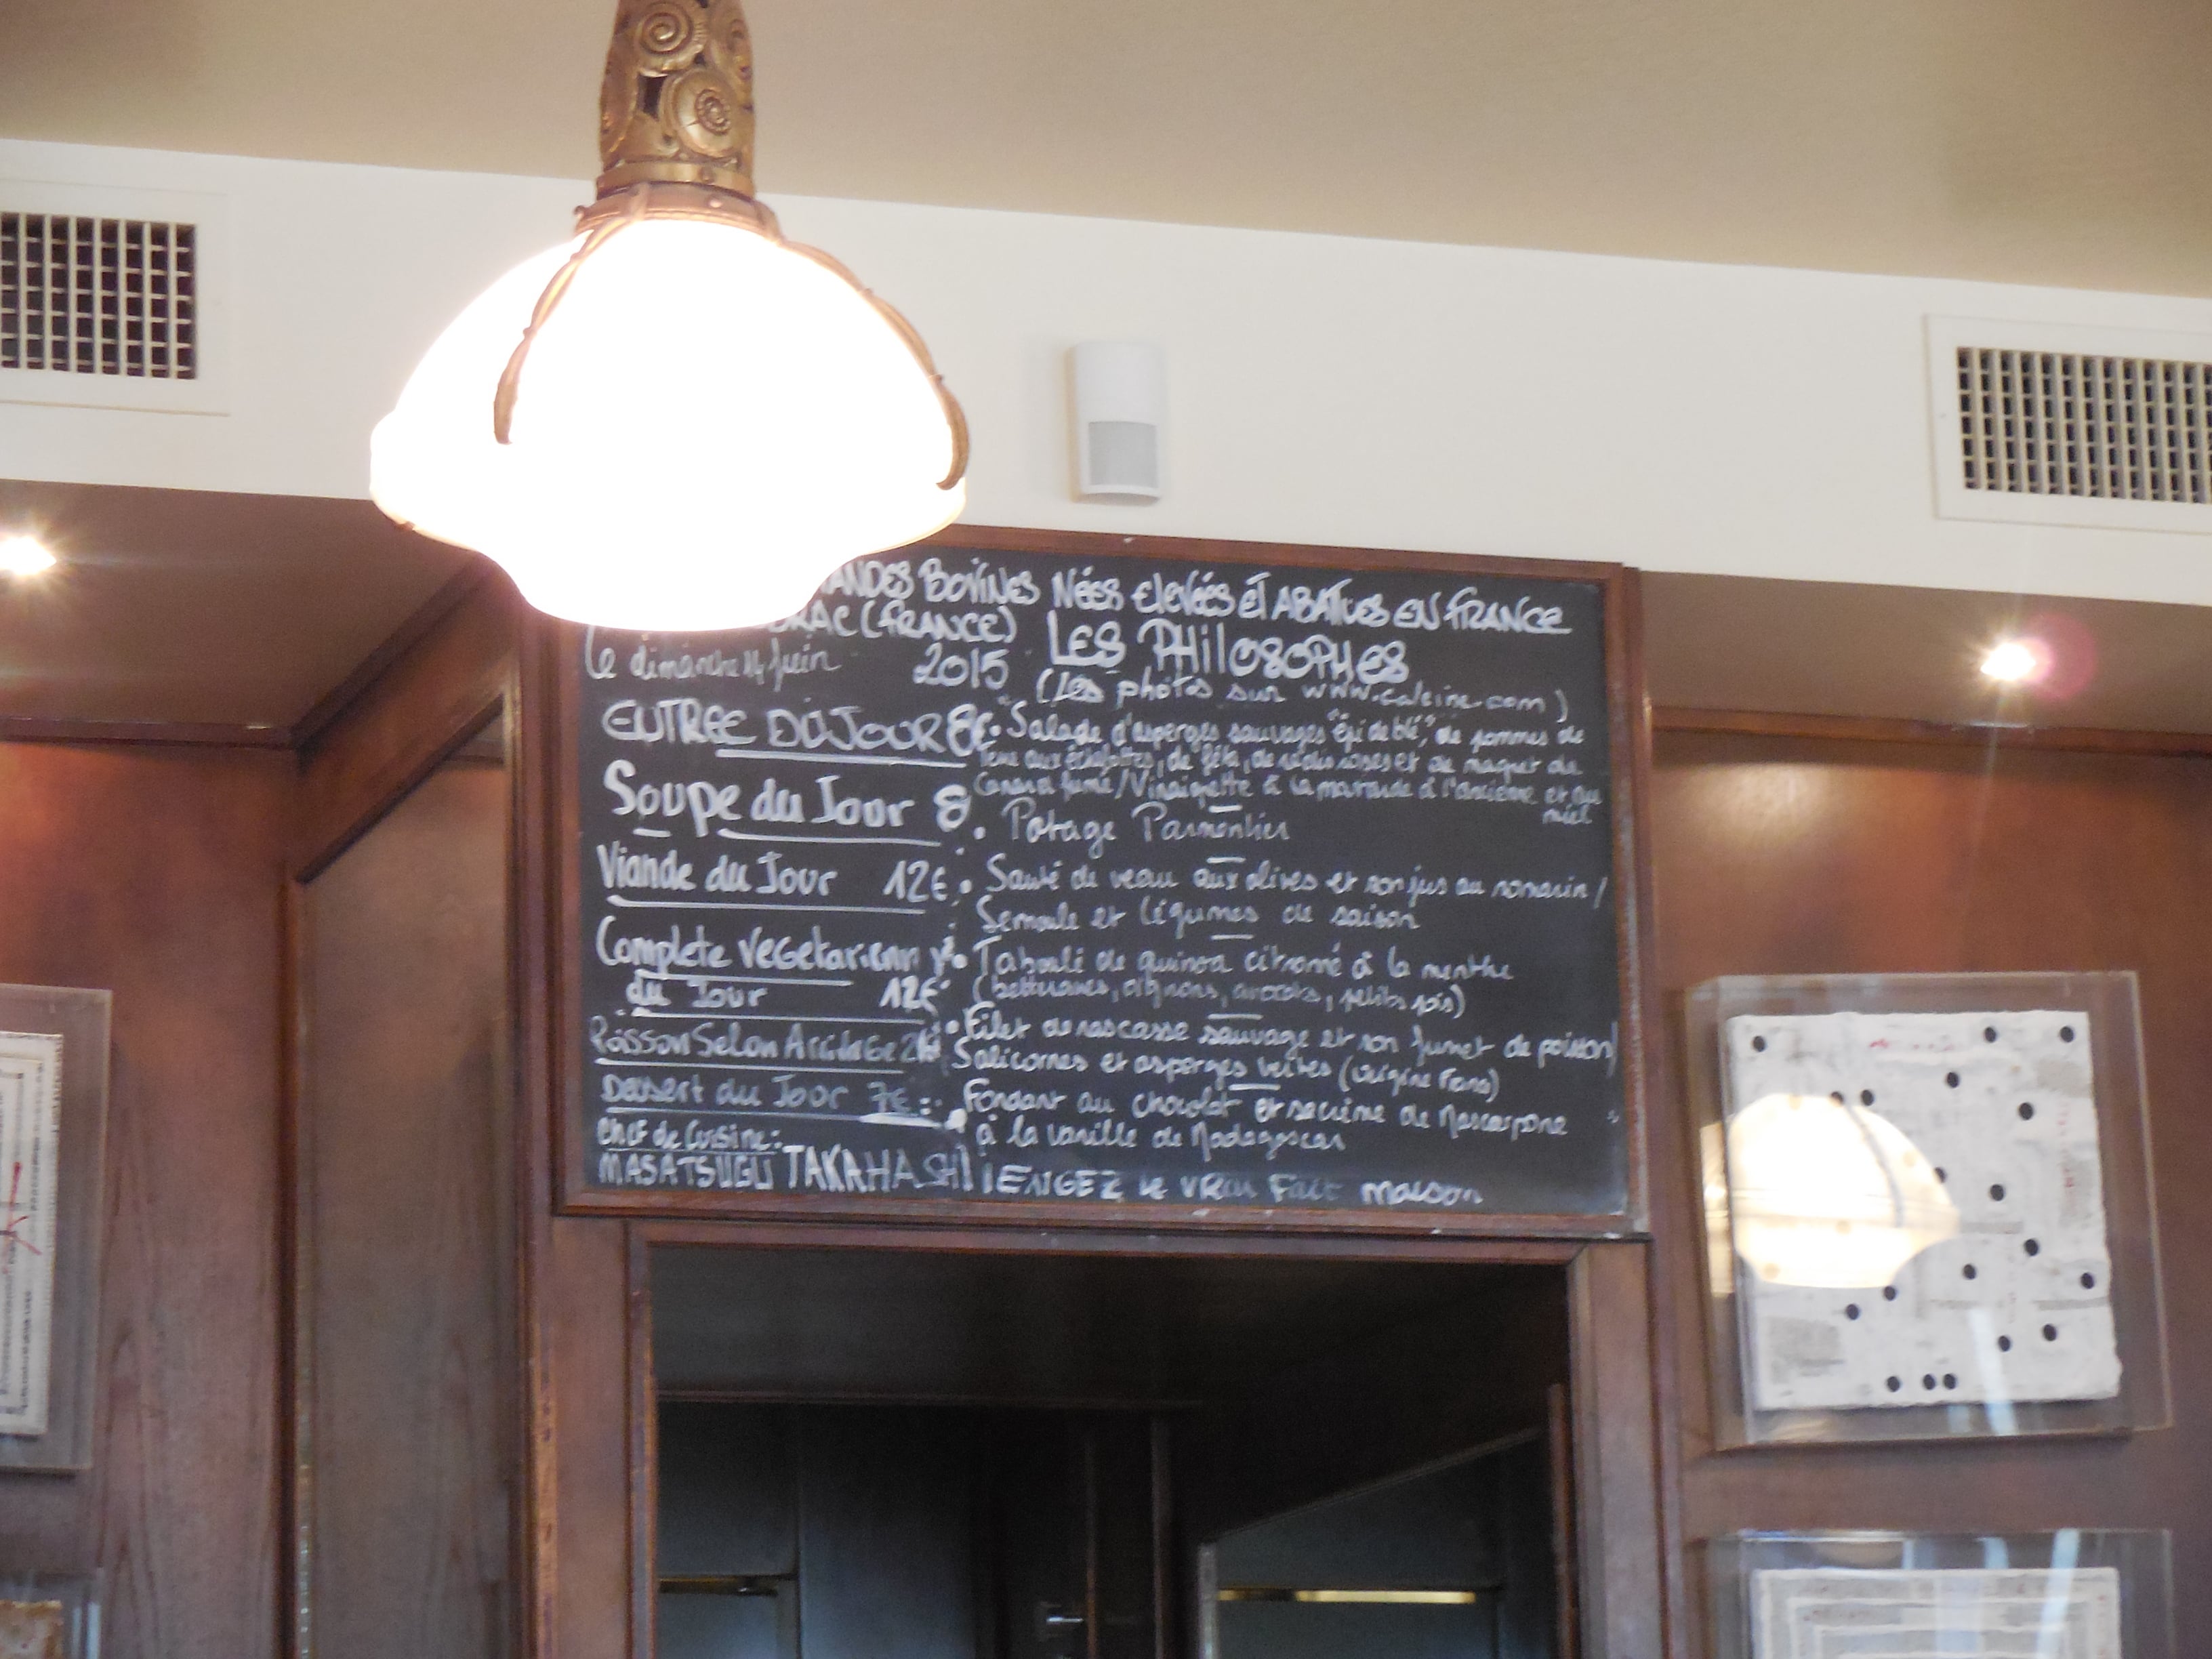 BOVINES NÉES ELEVÉES ET ABATTUES EN FRANCE
(FRANCE) LES PHILOSOPHES
Le dimanche 14 Juin 2015
(Les photos sur www.cafeine.com)
ENTREE DU JOUR 8€ • Salade d'asperges sauvages "épi de blé", de pommes de
terre aux échalottes, de féta, de radis roses et de magret de
Canard fumé / Vinaigrette à la moutarde à l'ancienne et au
miel
Soupe du Jour 8 • Potage Parmentier
Viande du Jour 12€ • Sauté de veau aux olives et son jus au romarin /
Semoule et légumes de saison
Complete Vegetarienn • Taboulé de quinoa citronné à la menthe
du Jour 12€ (betteraves, oignons, avocats, petits pois)
Poisson Selon Arrivage • Filet de rascasse sauvage et son fumet de poisson /
Salicornes et asperges vertes (origine
Dessert du Jour 7€ Fondant au chocolat et sa crème de Mascarpone
à la vanille de Madagascar
Chef de Cuisine:
MASATSUGU TAKAHASHI le vrai Fait maison